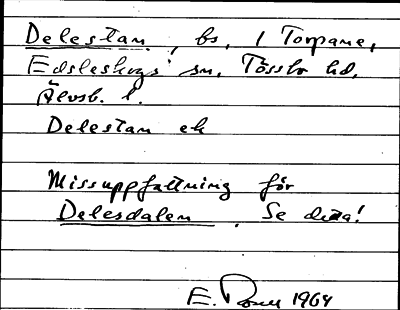 Delestan, bs, i Torpane,
Edsleskogs sn, Tössbo hd,
Älvsb. l.
Delestan ek
Missuppfattning för
Delesdalen. Se detta!
E. 1964